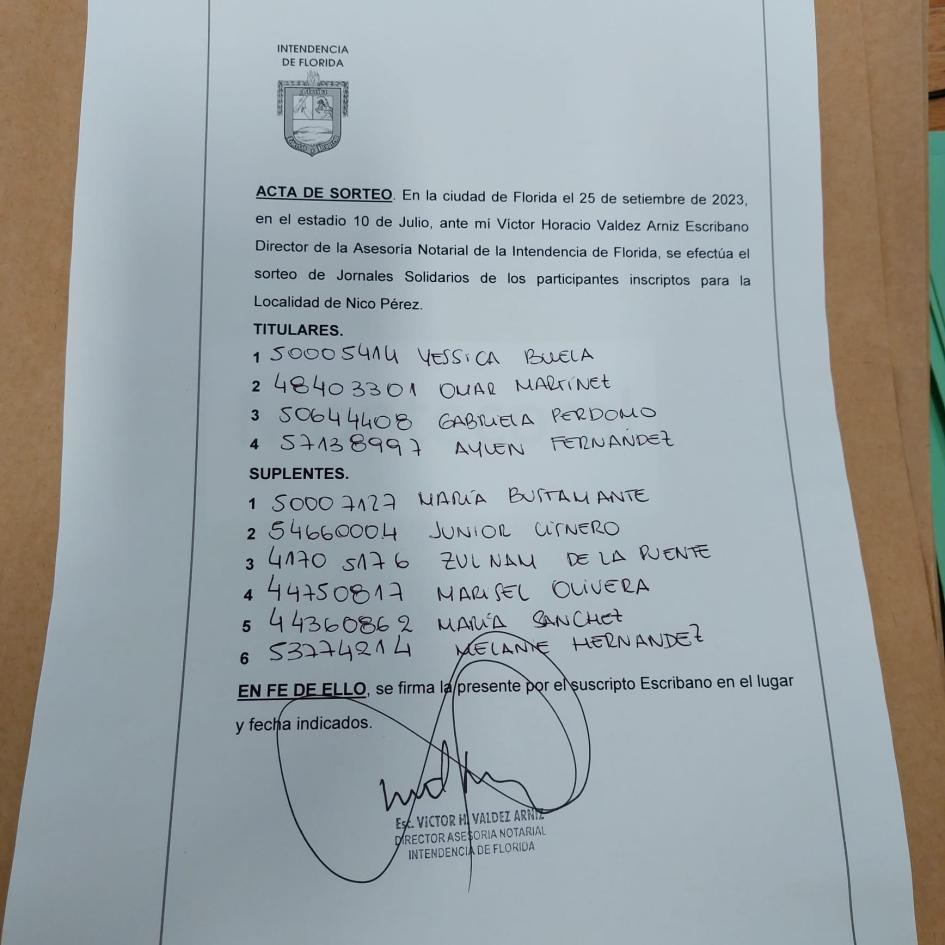 INTENDENCIA
DE FLORIDA
ACTA DE SORTEO. En la ciudad de Florida el 25 de setiembre de 2023,
en el estadio 10 de Julio, ante mí Víctor Horacio Valdez Arniz Escribano
Director de la Asesoría Notarial de la Intendencia de Florida, se efectúa el
sorteo de Jornales Solidarios de los participantes inscriptos para la
Localidad de Nico Pérez.
TITULARES.
1 50005414 YESSICA BUELA
2 48403301 OMAR MARTINEZ
3 50644408 GABRIELA PERDOMO
4 57138997 AYLEN FERNANDEZ
SUPLENTES.
1 50007127 MARÍA BUSTAMANTE
2 54660004 JUNIOR CISNERO
3 4170 5176 ZULNAM DE LA PUENTE
4 44750817 MARISEL OLIVERA
5 44360862 MARÍA SANCHEZ
6 53774214 MELANIE HERNANDEZ
EN FE DE ELLO, se firma la presente por el suscripto Escribano en el lugar
y fecha indicados.
Esc. VICTOR H. VALDEZ ARNIZ
DIRECTOR ASESORIA NOTARIAL
INTENDENCIA DE FLORIDA